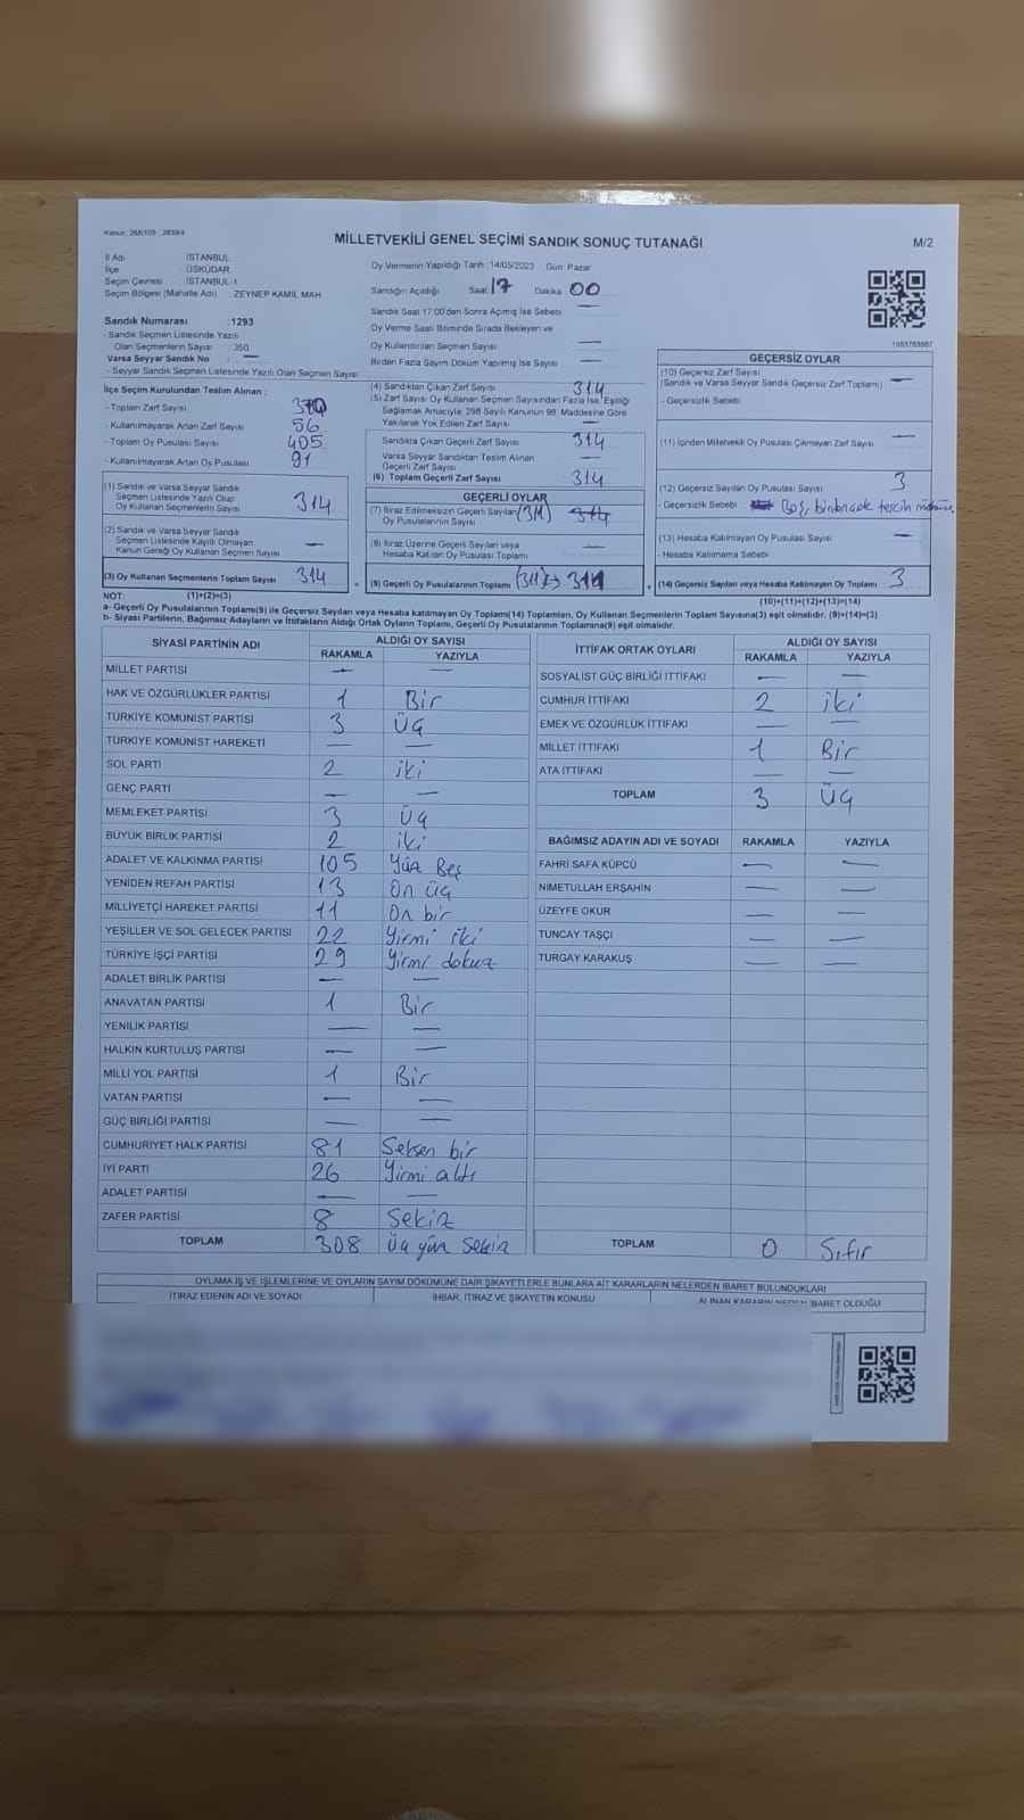 MİLLETVEKİLİ GENEL SEÇİMİ SANDIK SONUÇ TUTANAĞI
M/2
İl Adı : İSTANBUL
İlçe : ÜSKÜDAR
Seçim Çevresi : İSTANBUL-1
Seçim Bölgesi (Mahalle Adı) : ZEYNEP KAMİL MAH
Sandık Numarası :1293
- Sandık Seçmen Listesinde Yazılı
Olan Seçmenlerin Sayısı :350
Varsa Seyyar Sandık No : —
- Seyyar Sandık Seçmen Listesinde Yazılı Olan Seçmen Sayısı
İlçe Seçim Kurulundan Teslim Alınan :
- Toplam Zarf Sayısı 370
- Kullanılmayarak Artan Zarf Sayısı 56
- Toplam Oy Pusulası Sayısı 405
- Kullanılmayarak Artan Oy Pusulası 91
(1) Sandık ve Varsa Seyyar Sandık
Seçmen Listesinde Yazılı Olup
Oy Kullanan Seçmenlerin Sayısı 314
(2) Sandık ve Varsa Seyyar Sandık
Seçmen Listesinde Kayıtlı Olmayan
Kanun Gereği Oy Kullanan Seçmen Sayısı —
(3) Oy Kullanan Seçmenlerin Toplam Sayısı 314
Oy Vermenin Yapıldığı Tarih :14/05/2023 Gün: Pazar
Sandığın Açıldığı Saat 17 Dakika 00
Sandık Saat 17:00'den Sonra Açılmış İse Sebebi —
Oy Verme Saati Bitiminde Sırada Bekleyen ve
Oy Kullandırılan Seçmen Sayısı —
Birden Fazla Sayım Döküm Yapılmış İse Sayısı —
(4) Sandıktan Çıkan Zarf Sayısı 314
(5) Zarf Sayısı Oy Kullanan Seçmen Sayısından Fazla İse, Eşitliği
Sağlamak Amacıyla, 298 Sayılı Kanunun 98. Maddesine Göre
Yakılarak Yok Edilen Zarf Sayısı —
Sandıkta Çıkan Geçerli Zarf Sayısı 314
Varsa Seyyar Sandıktan Teslim Alınan
Geçerli Zarf Sayısı —
(6) Toplam Geçerli Zarf Sayısı 314
GEÇERLİ OYLAR
(7) İtiraz Edilmeksizin Geçerli Sayılan (311) 314
Oy Pusulalarının Sayısı
(8) İtiraz Üzerine Geçerli Sayılan veya
Hesaba Katılan Oy Pusulası Toplamı —
(9) Geçerli Oy Pusulalarının Toplamı (311) → 311
GEÇERSİZ OYLAR
(10) Geçersiz Zarf Sayısı —
(Sandık ve Varsa Seyyar Sandık Geçersiz Zarf Toplamı)
- Geçersizlik Sebebi
(11) İçinden Milletvekili Oy Pusulası Çıkmayan Zarf Sayısı —
(12) Geçersiz Sayılan Oy Pusulası Sayısı 3
- Geçersizlik Sebebi Boş, birden çok tercih mührü
(13) Hesaba Katılmayan Oy Pusulası Sayısı —
- Hesaba Katılmama Sebebi
(14) Geçersiz Sayılan veya Hesaba Katılmayan Oy Toplamı 3
NOT: (1)+(2)=(3) (10)+(11)+(12)+(13)=(14)
a- Geçerli Oy Pusulalarının Toplamı(9) ile Geçersiz Sayılan veya Hesaba katılmayan Oy Toplamı(14) Toplamları, Oy Kullanan Seçmenlerin Toplam Sayısına(3) eşit olmalıdır. (9)+(14)=(3)
b- Siyasi Partilerin, Bağımsız Adayların ve İttifakların Aldığı Ortak Oyların Toplamı, Geçerli Oy Pusulalarının Toplamına(9) eşit olmalıdır.
SİYASİ PARTİNİN ADI ALDIĞI OY SAYISI
RAKAMLA YAZIYLA
MİLLET PARTİSİ — —
HAK VE ÖZGÜRLÜKLER PARTİSİ 1 Bir
TÜRKİYE KOMÜNİST PARTİSİ 3 Üç
TÜRKİYE KOMÜNİST HAREKETİ — —
SOL PARTİ 2 iki
GENÇ PARTİ — —
MEMLEKET PARTİSİ 3 Üç
BÜYÜK BİRLİK PARTİSİ 2 iki
ADALET VE KALKINMA PARTİSİ 105 Yüz Beş
YENİDEN REFAH PARTİSİ 13 On üç
MİLLİYETÇİ HAREKET PARTİSİ 11 On bir
YEŞİLLER VE SOL GELECEK PARTİSİ 22 Yirmi iki
TÜRKİYE İŞÇİ PARTİSİ 29 Yirmi dokuz
ADALET BİRLİK PARTİSİ — —
ANAVATAN PARTİSİ 1 Bir
YENİLİK PARTİSİ — —
HALKIN KURTULUŞ PARTİSİ — —
MİLLİ YOL PARTİSİ 1 Bir
VATAN PARTİSİ — —
GÜÇ BİRLİĞİ PARTİSİ — —
CUMHURİYET HALK PARTİSİ 81 Seksen bir
İYİ PARTİ 26 Yirmi altı
ADALET PARTİSİ — —
ZAFER PARTİSİ 8 Sekiz
TOPLAM 308 Üç yüz sekiz
İTTİFAK ORTAK OYLARI ALDIĞI OY SAYISI
RAKAMLA YAZIYLA
SOSYALİST GÜÇ BİRLİĞİ İTTİFAKI — —
CUMHUR İTTİFAKI 2 iki
EMEK VE ÖZGÜRLÜK İTTİFAKI — —
MİLLET İTTİFAKI 1 Bir
ATA İTTİFAKI — —
TOPLAM 3 Üç
BAĞIMSIZ ADAYIN ADI VE SOYADI RAKAMLA YAZIYLA
FAHRİ SAFA KÜPCÜ — —
NİMETULLAH ERŞAHİN — —
ÜZEYFE OKUR — —
TUNCAY TAŞÇI — —
TURGAY KARAKUŞ — —
TOPLAM 0 Sıfır
OYLAMA İŞ VE İŞLEMLERİNE VE OYLARIN SAYIM DÖKÜMÜNE DAİR ŞİKAYETLERLE BUNLARA AİT KARARLARIN NELERDEN İBARET BULUNDUKLARI
İTİRAZ EDENİN ADI VE SOYADI İHBAR, İTİRAZ VE ŞİKAYETİN KONUSU ALINAN KARARIN NEDEN İBARET OLDUĞU